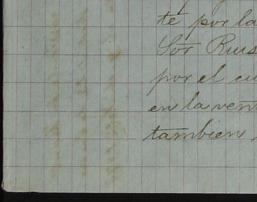 te por la
Sor Ruis
por el cu
en la ven
tambien